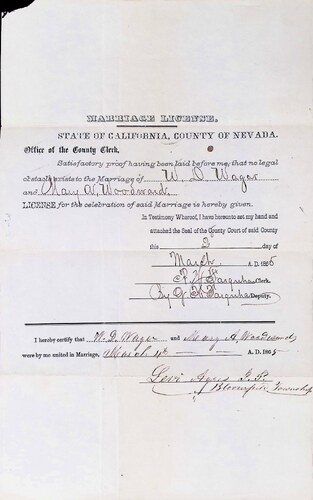 MARRIAGE LICENSE.
STATE OF CALIFORNIA, COUNTY OF NEVADA.
Office of the County Clerk,
Satisfactory proof having been laid before me, that no legal
obstacle exists to the Marriage of W. D. Wagar
and Mary A. Woodward,
LICENSE for the celebration of said Marriage is hereby given.
In Testimony Whereof, I have hereunto set my hand and
attached the Seal of the County Court of said County
this 2d day of
March A. D. 1865
Clerk.
By Deputy.
I hereby certify that W. D. Wagar and Mary A. Woodward
were by me united in Marriage, March 4th A. D. 1865
Levi Ayres J. P.
Bloomfield Township